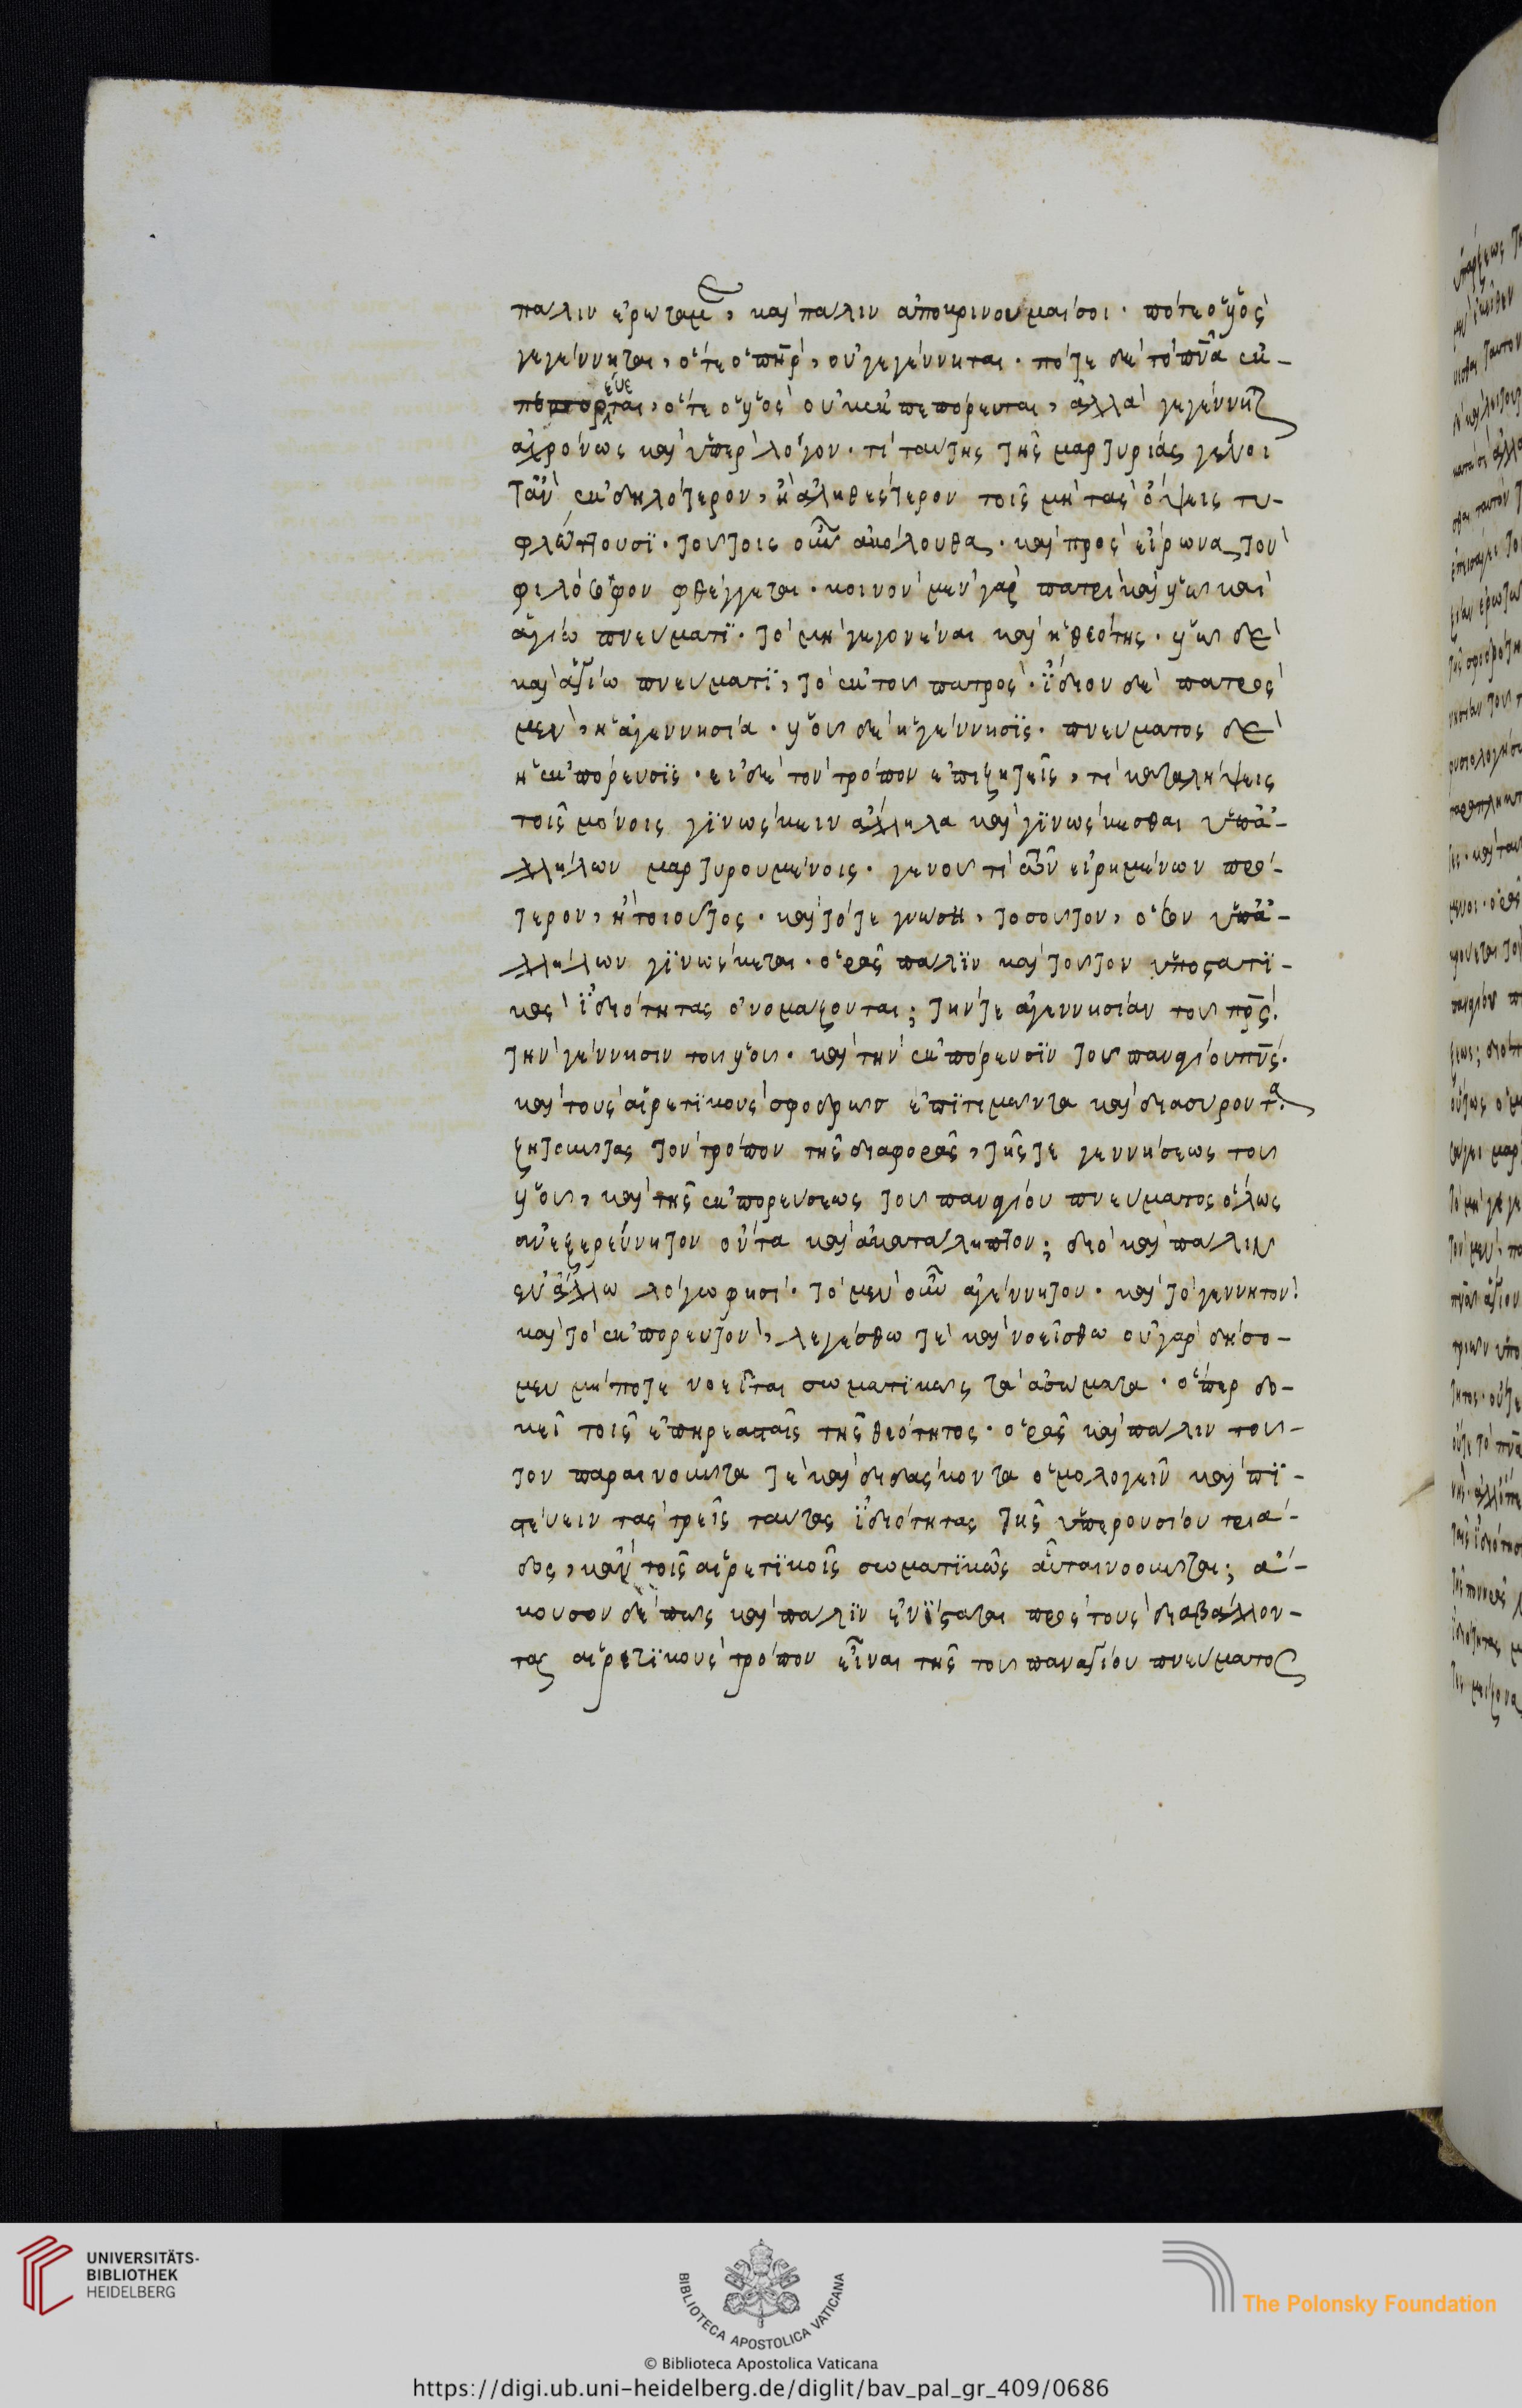 πάλιν ἐρωτᾶς, καὶ πάλιν ἀποκρινοῦμαί σοι · πότε ὁ υἱὸς
γεγέννηται, ὅτε ὁ πη̅ρ, οὐ γεγέννηται · πότε δὲ τὸ πν̅α ἐκ-
ὅτε ὁ υἱὸς οὐκ ἐκπεπόρευται, ἀλλὰ γεγέννητ
ἀχρόνως καὶ ὑπὲρ λόγον · τί ταύτης τῆς μαρτυρίας γένοι
τ᾽ἂν ἐκδηλότερον, ἢ ἀληθέστερον τοῖς μὴ τὰς ὄψεις τυ-
φλώττουσϊ · τούτοις οὖν ἀκόλουθα · καὶ πρὸς εἴρωνα τὸν
φιλόσοφον φθέγγεται · κοινὸν μὲν γὰρ πατρὶ καὶ υἱῶ καὶ
ἁγίω πνεύματϊ · τὸ μὴ γεγονέναι καὶ ἡ θεότης · υἱῶ δὲ
καὶ ἁγίω πνεύματϊ, τὸ ἐκ τοῦ πατρὸς · ἴδιον δὲ πατρὸς
μὲν, ἡ ἀγεννησία · υἱοῦ δὲ ἡ γέννησϊς · πνεύματος δὲ
ἡ ἐκπόρευσϊς · εἰ δὲ τὸν τρόπον ἐπιζητεῖς, τί καταλήψεις
τοῖς μόνοις γϊνώσκειν ἄλληλα καὶ γϊνώσκεσθαι ὑπ᾽ἀ-
λλήλων μαρτυρουμένοις · γενοῦ τί τῶν εἰρημένων πρό-
τερον, ἢ τοιοῦτος · καὶ τότε γνώση, τοσοῦτον, ὅσον ὑπ᾽ἀ-
λλήλων γϊνώσκεται · ὁρᾶς πάλϊν καὶ τοῦτον ὑποστατϊ-
κὰς ἰδιότητας ὀνομάζονται; τήν τε ἀγεννησίαν τοῦ πρ̅ς·
τὴν γέννησιν τοῦ υἱοῦ · καὶ τὴν ἐκπόρευσϊν τοῦ παναγίου πν̅ς·
καὶ τοὺς αἱρετϊκοὺς σφοδρῶς ἐπϊτιμῶντα καὶ διασύροντα
ζητοῦντας τὸν τρόπον τῆς διαφορᾶς, τῆς τε γεννήσεως τοῦ
υἱοῦ, καὶ τῆς ἐκπορεύσεως τοῦ παναγίου πνεύματος ὅλως
ἀνεξερεύνητον ὄντα καὶ ἀκατάληπτον; διὸ καὶ πάλιν
ἐν ἄλλω λόγω φησὶ · τὸ μὲν οὖν ἀγέννητον · καὶ τὸ γεννητὸν·
καὶ τὸ ἐκπορευτὸν, λεγέσθω τὲ καὶ νοείσθω οὐ γὰρ δήσο-
μεν μήποτε νοεῖται σωματϊκῶς τὰ ἀσώματα · ὅπερ δο-
κεῖ τοῖς ἐπηρεασταῖς τῆς θεότητος · ὁρᾶς καὶ πάλιν τοῦ-
τον παραινοῦντα τὲ καὶ διδάσκοντα ὁμολογεῖν καὶ πϊ-
στεύειν τὰς τρεῖς ταύτας ἰδιότητας τῆς ὑπερουσίου τριά-
δος, κἂν τοῖς αἱρετϊκοῖς σωματϊκῶς αὗται νοοῦνται; ἄ-
κουσον δὲ πῶς καὶ πάλϊν ἐνΐσταται πρὸς τοὺς διαβάλλον-
τας αἱρετϊκοὺς τρόπον εἶναι τῆς τοῦ παναγίου πνεύματος
UNIVERSITÄTS-
BIBLIOTHEK
HEIDELBERG
BIBLIOTECA APOSTOLICA VATICANA
© Biblioteca Apostolica Vaticana
The Polonsky Foundation
https://digi.ub.uni-heidelberg.de/diglit/bav_pal_gr_409/0686